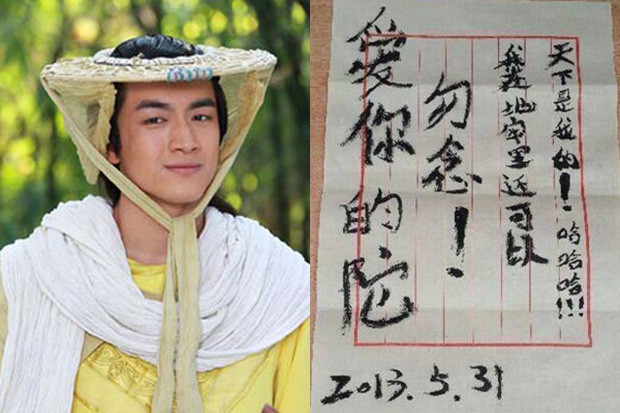 天下是我的！哈哈哈!!!
我在地里还可以
勿念！
愛你的陀
2013.5.31